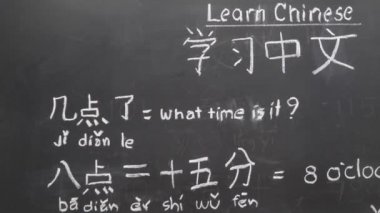 Learn Chinese
学习中文
几点了 = what time is it?
jǐ diǎn le
八点二十五分 = 8 o'cloc
bā diǎn èr shí wǔ fēn